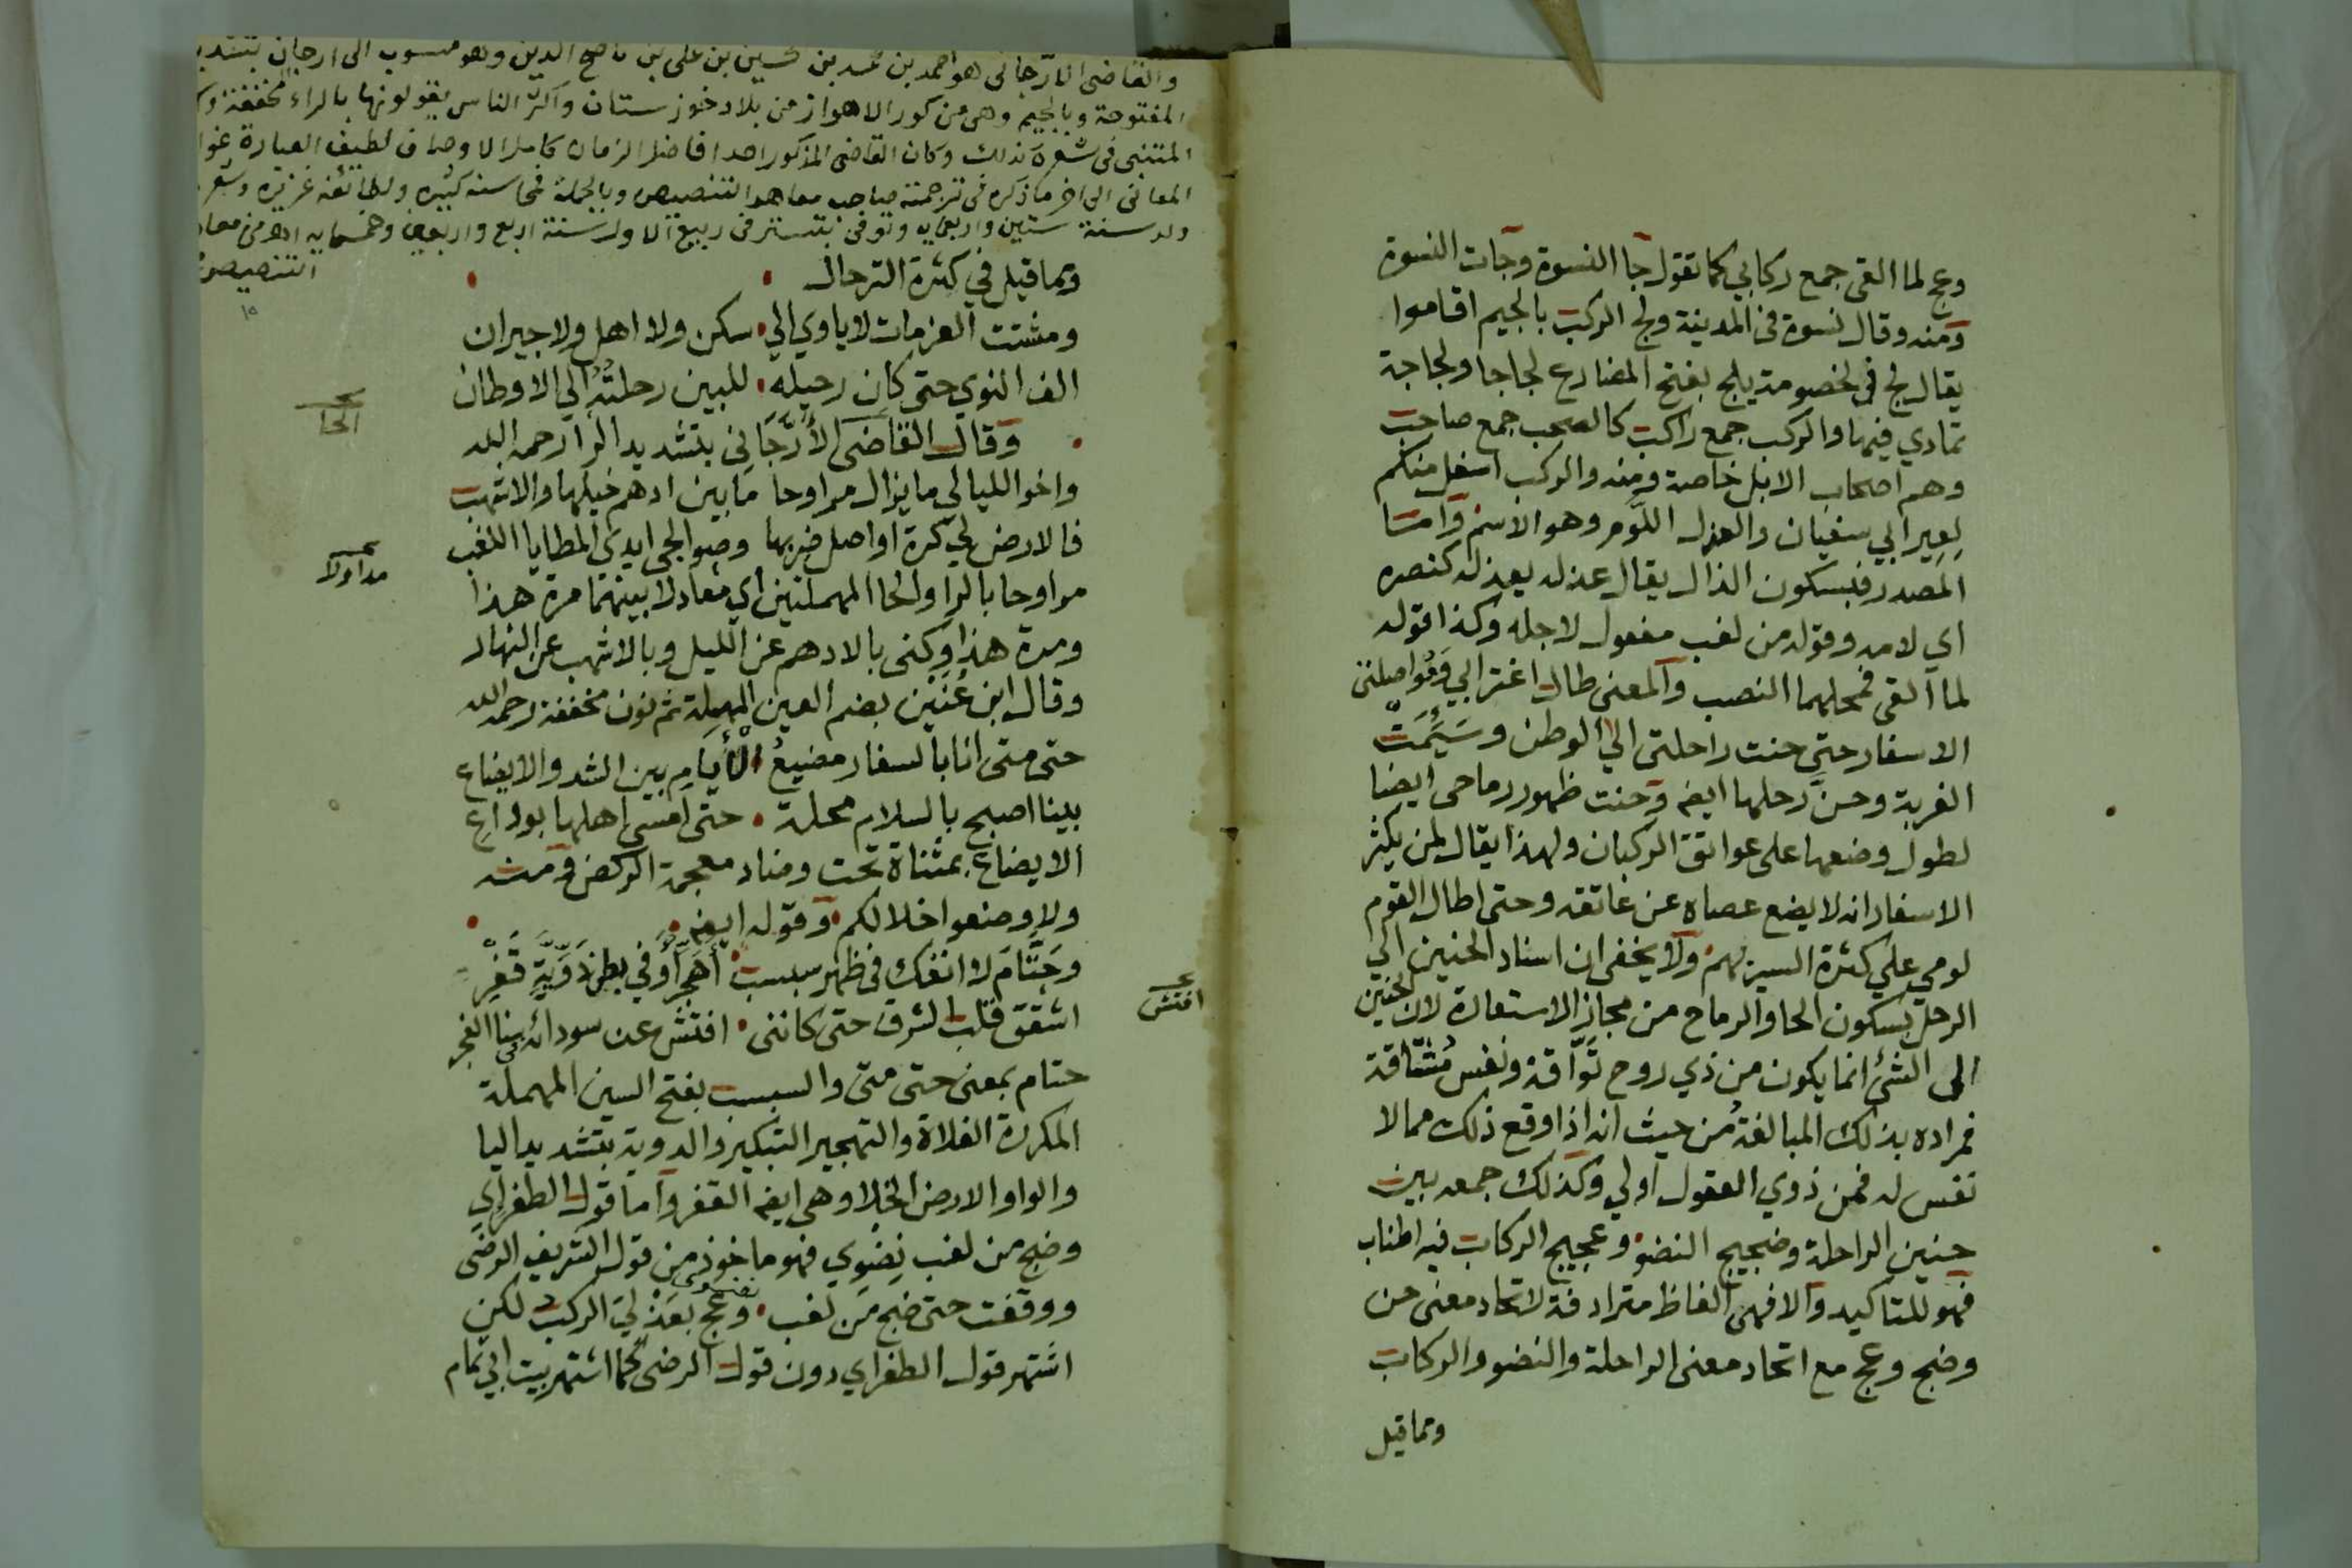 وعج لما القى جمع ركابي كما تقول جا النسوة وجات النسوة
ومنه وقال نسوة في المدينة ولج الركب بالجيم اقاموا
يقال لج في الخصومة يلج بفتح المضارع لجاجا ولجاجة
تمادي فيها والركب جمع راكب كالصحب جمع صاحب
وهم اصحاب الابل خاصة ومنه والركب اسفل منكم
لعير ابي سفيان والعذل اللوم وهو الاسم وامتا
المصدر فبسكون الذال يقال عذله يعذله كنصره
اي لامه وقوله من لغب مفعول لاجله وكذا قوله
لما القى فمحلهما النصب والمعنى طال اغترابي وتواصلتني
الاسفار حتي حنت راحلتي الي الوطن وسئمت
الغربة وحن رحلها ايضه وحنت ظهور رماحى ايضا
لطول وضعها على عواتق الركبان ولهذا يقال لمن يكثر
الاسفار انه لا يضع عصاه عن عاتقه وحتى اطال القوم
لومي علي كثرة السير بهم ولا يخفى ان اسناد الحنين الي
الرحل بسكون الحا والرماح من مجاز الاستعارة لان الحنين
الى الشئ انما يكون من ذي روح تواقة ونفس مشتاقة
فمراده بذلك المبالغة من حيث انه اذا وقع ذلك ممالا
نفس له فمن ذوي العقول اولي وكذلك جمعه بين
حنين الراحلة وضجيج النضو وعجيج الركاب فيه اطناب
فهو للتاكيد والا فهى الفاظ مترادفة لاتحاد معنى حن
وضج وعج مع اتحاد معنى الراحلة والنضو والركاب
ومما قيل
والقاضى الارجانى هو احمد بن محمد بن حسين بن على بن ناصح الدين وهو منسوب الى ارجان بتشديد
المفتوحة وبالجيم وهى من كور الاهواز من بلاد خوزستان واكثر الناس يقولونها بالراء مخففة
المتنبى فى شعره كذلك وكان القاضى المذكور احد افاضل الزمان كامل الاوصاف لطيف العبارة
المعانى الى اخر ما ذكره فى ترجمته صاحب معاهد التنصيص وبالجملة فمحاسنه كثيره ولطائفه غزيره
ولد سنة ستين واربعمايه وتوفى بتستر فى ربيع الاول سنة اربع واربعين وخمسمايه اهـ من معاهد
التنصيص
١٥
ومما قيل في كثرة الترحال
ومشتت العزمات لا ياوي الي سكن ولا اهل ولا جيران
الف النوي حتى كان رحيله للبين رحلته الي الاوطان
وقال القاضى الأرّجاني بتشديد الرا رحمه الله
واخو الليالي ما يزال مراوحا ما بين ادهم خيلها والاشهب
فالارض لي كرة اواصل ضربها وصوالجى ايدي المطايا اللغب
مراوحا بالرا والحا المهملتين اي معادلا بينهما مرة هذا
ومرة هذا وكنى بالادهم عن الليل وبالاشهب عن النهار
وقال ابن عنين بضم العين المهملة ثم نون مخففة رحمه الله
حتى متى انا بالسفار مضيع الأيام بين الشد والايضاع
بينا اصبح بالسلام محلة حتى امسي اهلها بوداع
الايضاع بمثناة تحت وضاد معجمة الركض ومنه
ولا وضعوا خلالكم وقوله ايضه
وحتّام لا انفك في ظهر سبسب أهجّر أو في بطن دوّيّة قفر
اشقق قلب الشرق حتى كانني افتش عن سودائه سنا الفجر
حتام بمعنى حتى متى والسبسب بفتح السين المهملة
المكررة الفلاة والتهجير التبكير والدوية بتشديد اليا
والواو الارض الخلا وهى ايضه القفر واما قول الطغراي
وضج من لغب نضوي فهو ماخوذ من قول الشريف الرضى
ووقفت حتى ضج من لغب نضوى وعج بعذلي الركب لكن
اشتهر قول الطغراي دون قول الرضى كما اشتهر بيت ابي تمام
الحا
افتش